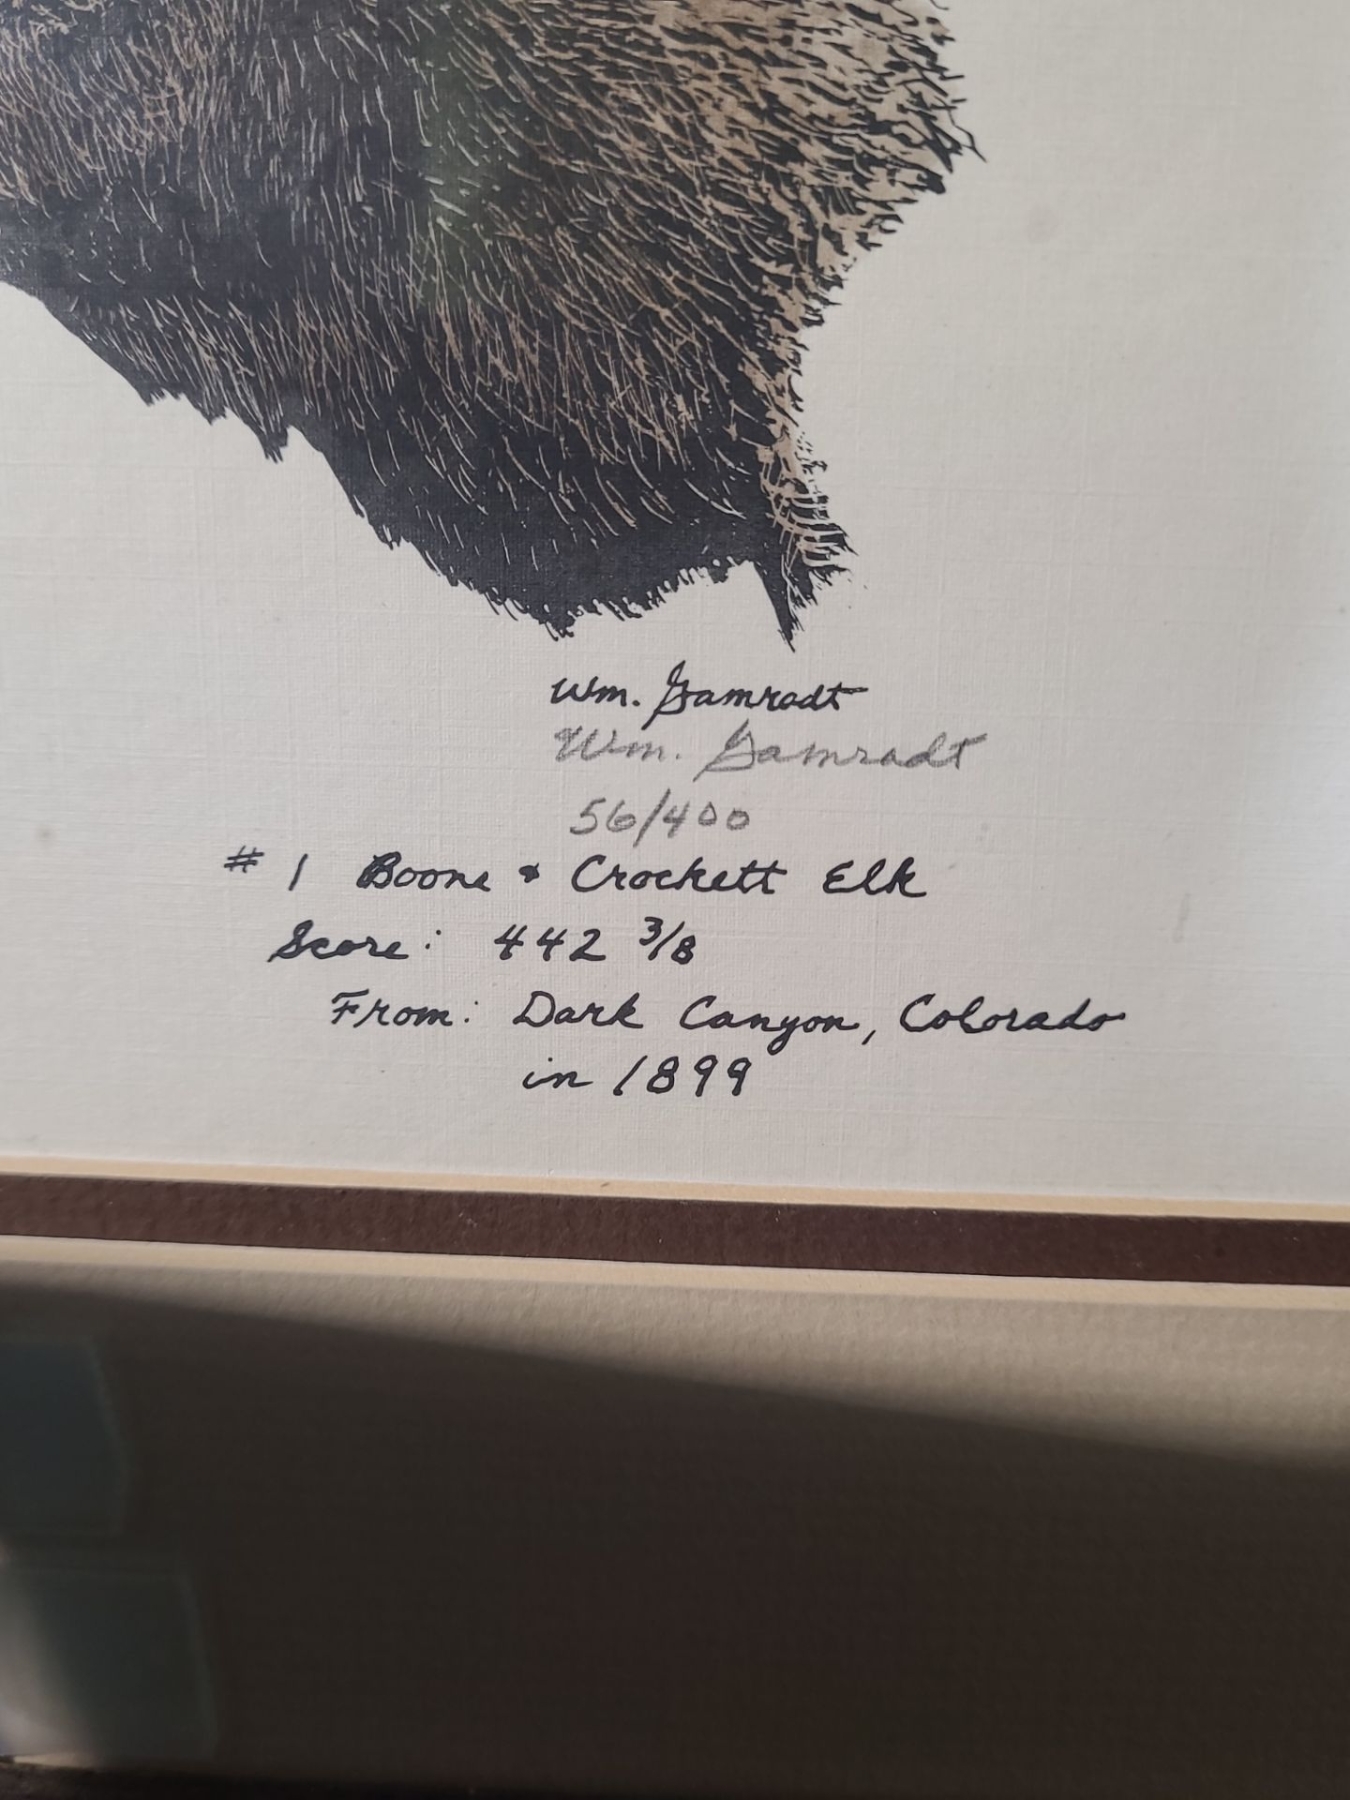 Wm. Gamradt
Wm. Gamradt
56/400
# 1 Boone & Crockett Elk
Score: 442 3/8
From: Dark Canyon, Colorado
in 1899